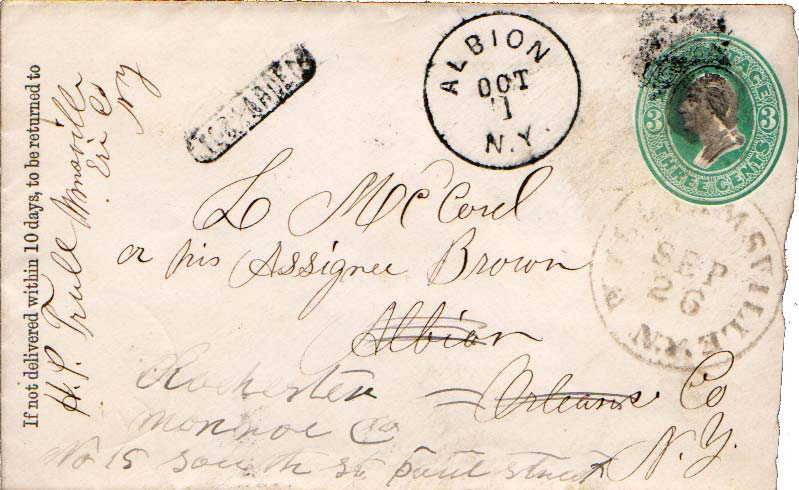 If not delivered within 10 days, to be returned to
H. P. Trull
Eri Co
NY
FORWARDED
ALBION
OCT
1
N.Y.
THREE CENTS
3 3
WILLIAMSVILLE N Y
SEP
26
L McCord
or his Assignee Brown
Albion
Orleans Co
N.Y.
Rochester
Monroe Co
No 15 South St paul street